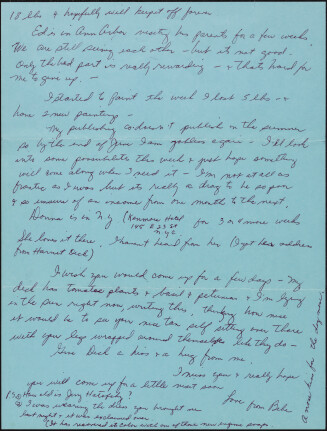 10 lbs & hopefully will keep it off forever
Ed is in Ann Arbor visiting his parents for a few weeks
We are still seeing each other - but its not good.
Only the bad part is really rewarding - & thats hard for
me to give up. -
I started to paint the week I lost 5 lbs - &
have 2 new paintings -
My publishing co doesn't publish in the summer
so by the end of June I am jobless again - I'll look
into some possibilities this week & just hope something
will come along when I need it - I'm not at all as
frantic as I was but its really a drag to be so poor
& so insecure of an income from one month to the next.
Donna is in N.Y. (Kenmore Hotel for 3 or 4 more weeks
145 E 23 St
N.Y.C
She loves it there. I haven't heard from her (I got her address
from Harriet Deck)
I wish you would come up for a few days - My
deck has tomatoe plants & basil & petunias & I'm lying
in the sun right now, writing this, thinking how nice
it would be to see your nice tan self sitting over there
with your legs wrapped around themselves like they do -
Give Deck a kiss & a hug from me.
I miss you & really hope
you will come up for a little visit soon
Love from Bebe
P.S. How old is Jerry
I was wearing the dress you brought me
last night & it was exclaimed over
It has recovered its color with one of those new enzyme soaps.